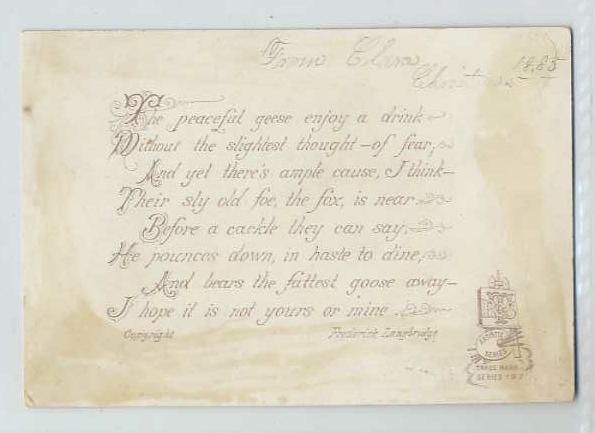 From Clara
Christmas 1885
The peaceful geese enjoy a drink
Without the slightest thought—of fear,
And yet there's ample cause, I think—
Their sly old foe, the fox, is near.
Before a cackle they can say,
He pounces down, in haste to dine,
And bears the fattest goose away—
I hope it is not yours or mine.
Copyright Frederick Langbridge
ARTISTIC
SERIES
TRADE MARK
SERIES